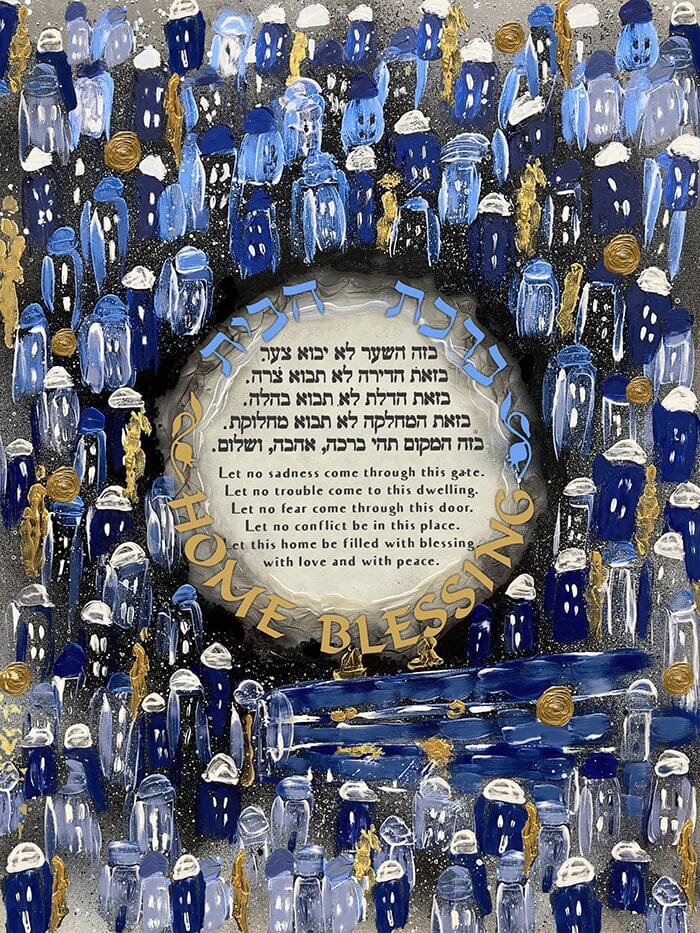 ברכת הבית
בזה השער לא יבוא צער.
בזאת הדירה לא תבוא צרה.
בזאת הדלת לא תבוא בהלה.
בזאת המחלקה לא תבוא מחלוקת.
בזה המקום תהי ברכה, אהבה, ושלום.
Let no sadness come through this gate.
Let no trouble come to this dwelling.
Let no fear come through this door.
Let no conflict be in this place.
et this home be filled with blessing
with love and with peace.
HOME BLESSING